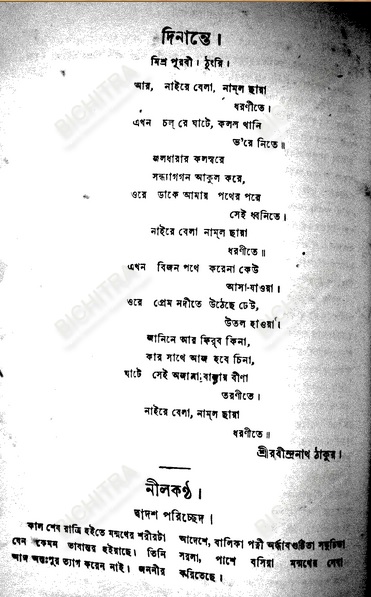 দিনান্তে।
মিশ্র পূরবী। ঠুংরি।
আর, নাইরে বেলা, নাম্‌ল ছায়া
ধরণীতে।
এখন চল্ রে ঘাটে, কলস খানি
ভ'রে নিতে॥
জলধারার কলস্বরে
সন্ধ্যাগগন আকুল করে,
ওরে ডাকে আমায় পথের পরে
সেই ধ্বনিতে।
নাইরে বেলা নাম্‌ল ছায়া
ধরণীতে॥
এখন বিজন পথে করেনা কেউ
আসা-যাওয়া।
ওরে প্রেম নদীতে উঠেছে ঢেউ,
উতল হাওয়া।
জানিনে আর ফির্‌ব কিনা,
কার সাথে আজ হবে চিনা,
ঘাটে সেই অজানা বাজায় বীণা
তরণীতে।
নাইরে বেলা, নাম্‌ল ছায়া
ধরণীতে॥
শ্রীরবীন্দ্রনাথ ঠাকুর।
নীলকণ্ঠ।
দ্বাদশ পরিচ্ছেদ।
কাল শেষ রাত্রি হইতে মন্মথের শরীরটা
যেন কেমন ভাবান্তর হইয়াছে। তিনি
আজ অন্তঃপুর ত্যাগ করেন নাই। জননীর
আদেশে, বালিকা পত্নী অর্দ্ধাবগুণ্ঠিতা
সরলা, পাশে বসিয়া মন্মথের সেবা
করিতেছে।
BICHITRA
BICHITRA
BICHITRA
BICHITRA